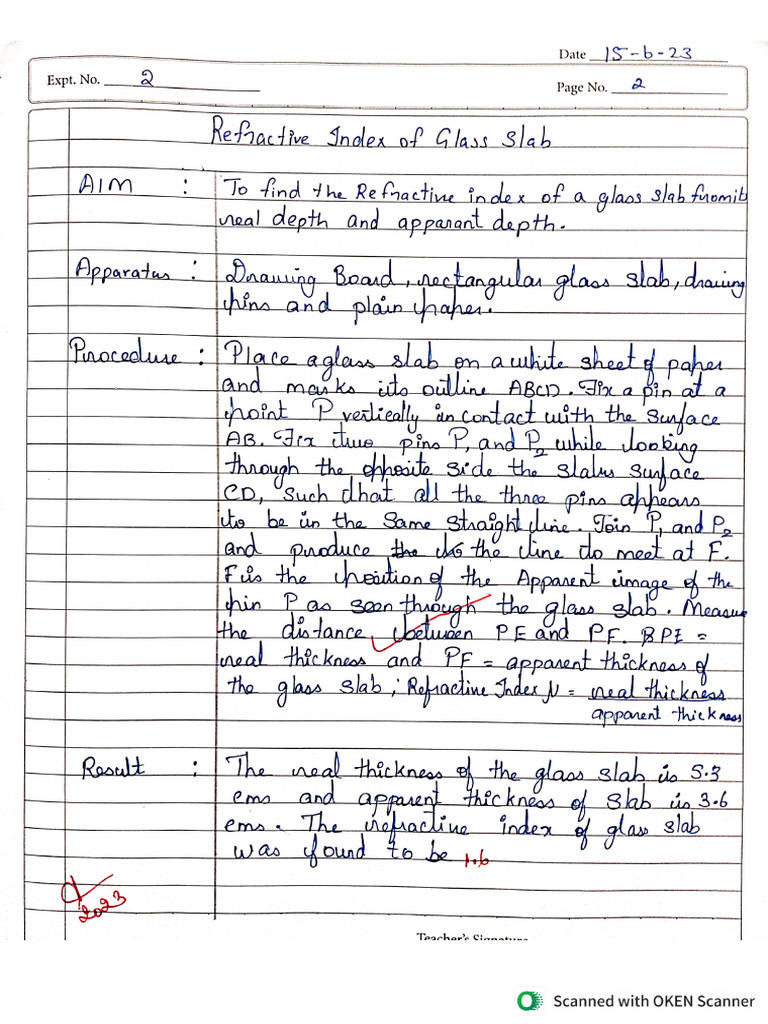 Date 15-6-23
Expt. No. 2
Page No. 2
Refractive Index of Glass Slab
AIM : To find the Refractive index of a glass slab from it
real depth and apparant depth.
Apparatus : Drawing Board, rectangular glass slab, drawing
pins and plain paper.
Procedure : Place a glass slab on a white sheet of paper
and marks its outline ABCD. Fix a pin at a
point P vertically in contact with the surface
AB. Fix two pins P, and P2 while looking
through the opposite side the slabs surface
CD, such that all the three pins appears
to be in the same straight line. Join P1 and P2
and produce the the line to meet at F.
F is the position of the Apparent image of the
pin P as seen through the glass slab. Measure
the distance between PE and PF. PE =
real thickness and PF = apparent thickness of
the glass slab; Refractive Index μ = real thickness
apparent thickness
Result : The real thickness of the glass slab is 5.3
cms and apparent thickness of slab is 3.6
cms. The refractive index of glass slab
was found to be 1.6
2023
Teacher's Signature
Scanned with OKEN Scanner